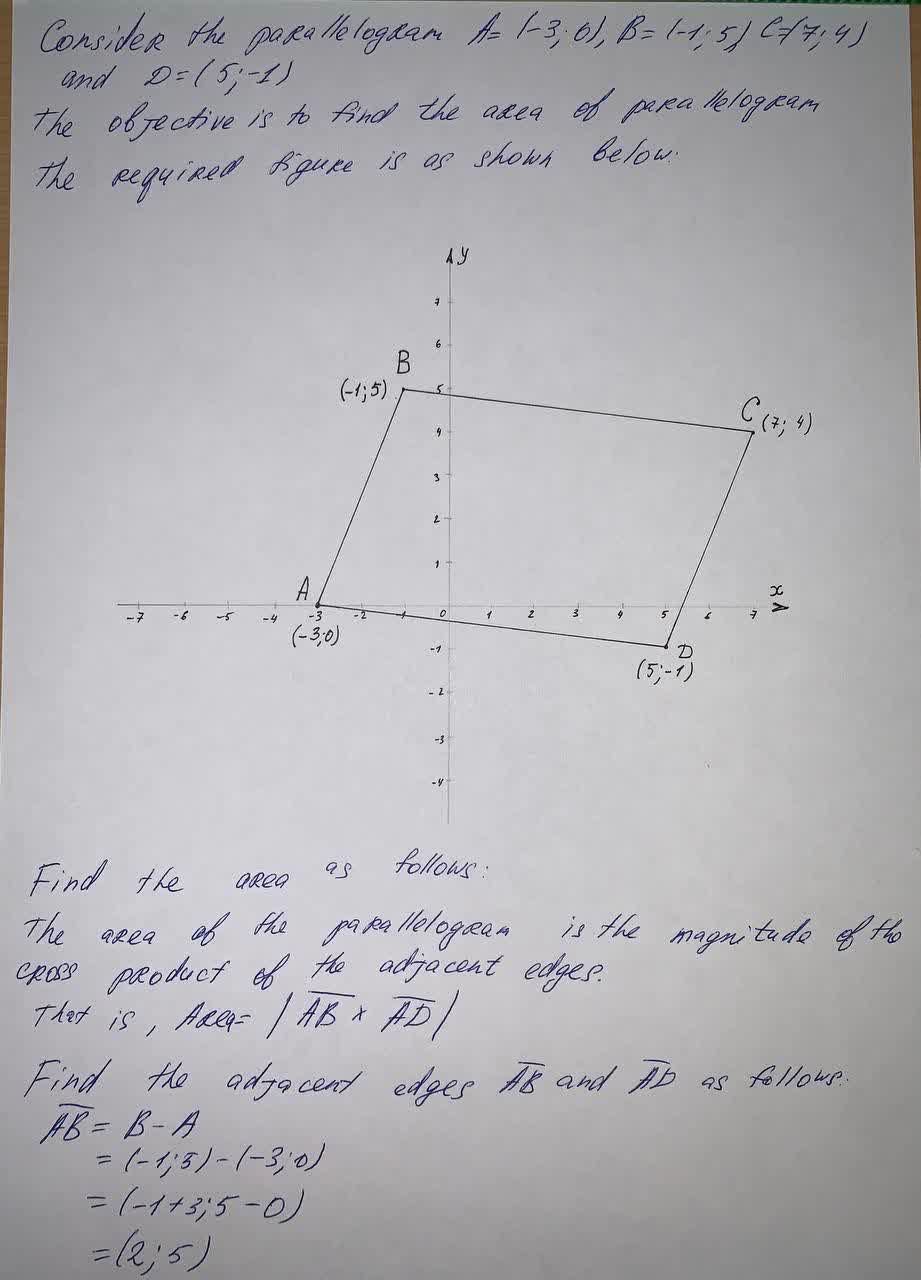 Consider the parallelogram A=(-3;0), B=(-1;5) C=(7;4)
and D=(5;-1)
The objective is to find the area of parallelogram
The required figure is as shown below:
y
7
6
B
(-1;5)
5
C
(7;4)
4
3
2
1
A
x
-7 -6 -5 -4 -3 -2 -1 0 1 2 3 4 5 6 7
(-3;0)
-1
D
(5;-1)
-2
-3
-4
Find the area as follows:
The area of the parallelogram is the magnitude of the
cross product of the adjacent edges.
That is, Area= |A̅B̅ × A̅D̅|
Find the adjacent edges A̅B̅ and A̅D̅ as follows:
A̅B̅ = B-A
=(-1;5)-(-3;0)
=(-1+3;5-0)
=(2;5)